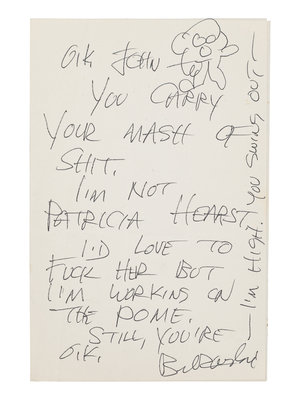 O.K. JOHN
YOU CARRY
YOUR MASH OF
SHIT.
I'M NOT
PATRICIA HEARST
I'D LOVE TO
FUCK HER BUT
I'M WORKING ON
THE POME.
STILL, YOU'RE
O.K.
— I'M HIGH. YOU SWING OUT —